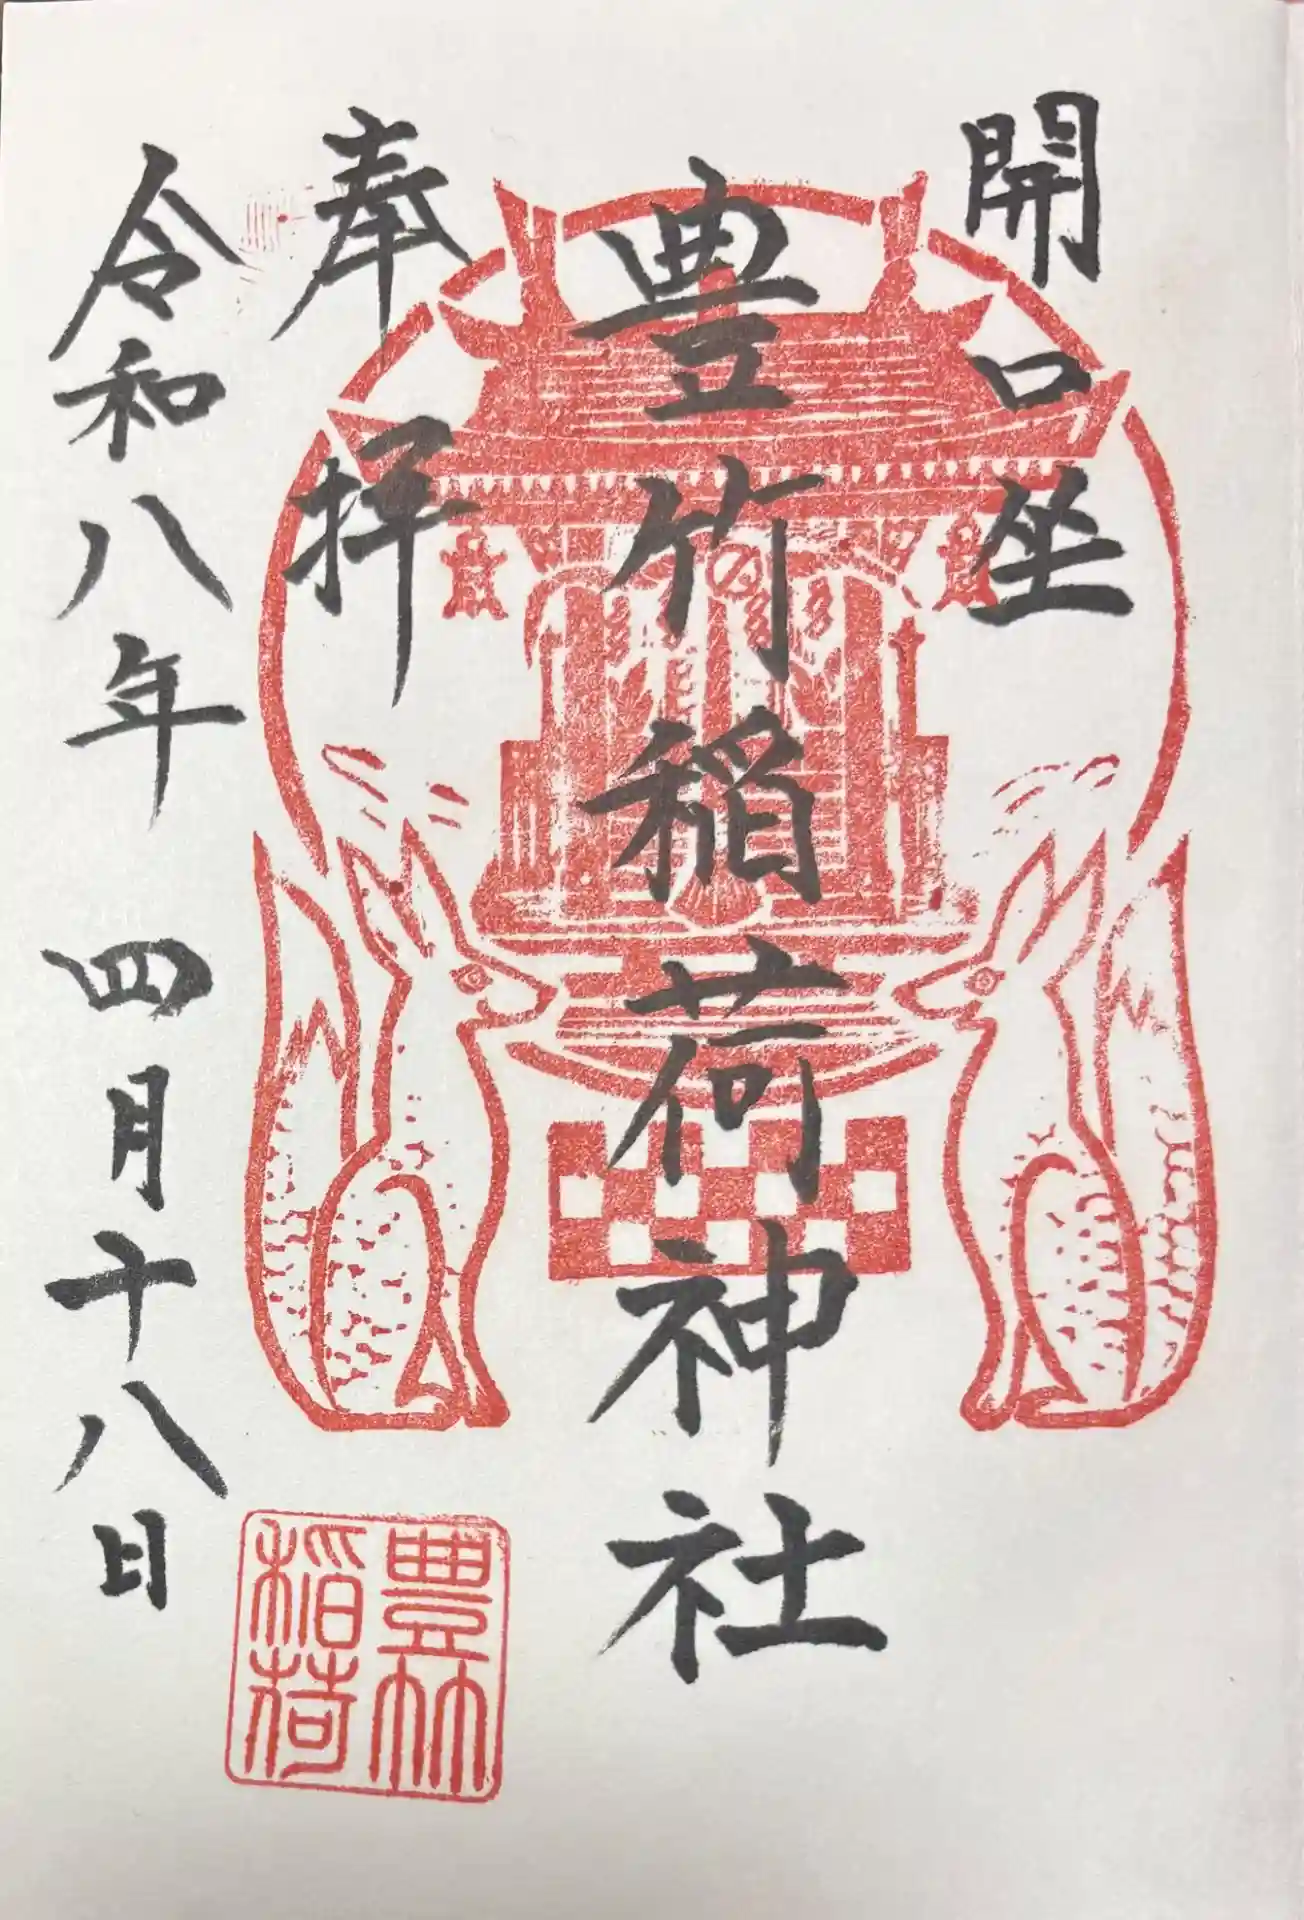 開口坐
豊竹稲荷神社
奉拝
令和八年四月十八日
豊竹
稲荷